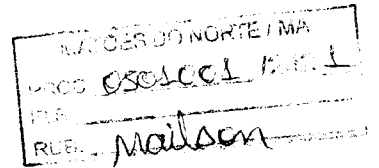 MATÕES DO NORTE / MA
PROC. 0501001
FLS.
RUB. Mailson